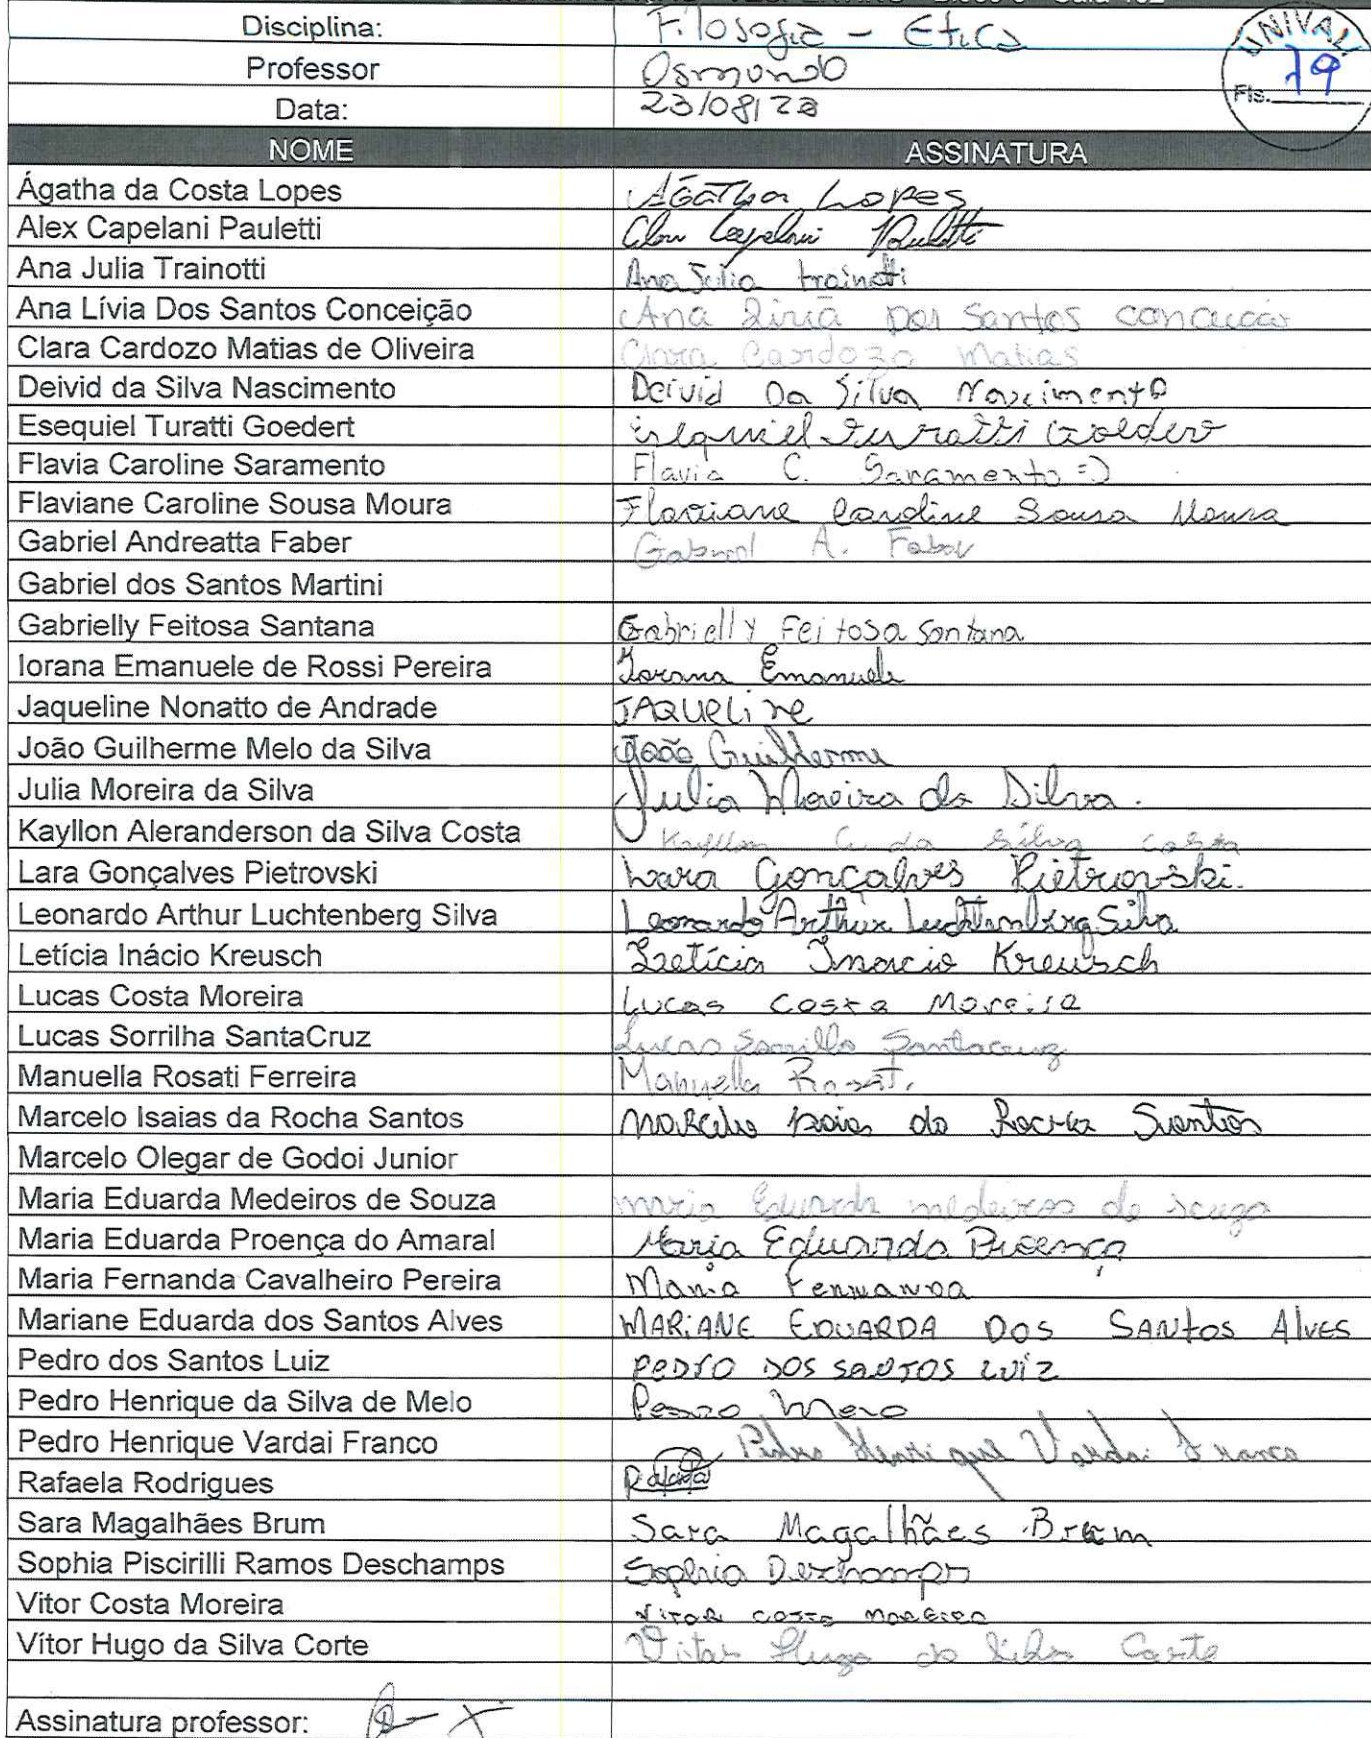 Disciplina: Filosofia - Etica
Professor Osmundo
Data: 23/08/22
UNIVALI
Fls. 19
NOME ASSINATURA
Ágatha da Costa Lopes Ágatha Lopes
Alex Capelani Pauletti Alex Capelani Pauletti
Ana Julia Trainotti Ana Julia trainotti
Ana Lívia Dos Santos Conceição Ana Livia Dos Santos conceicão
Clara Cardozo Matias de Oliveira Clara Cardozo Matias
Deivid da Silva Nascimento Deivid Da Silva Nascimento
Esequiel Turatti Goedert Esequiel Turatti Goedert
Flavia Caroline Saramento Flavia C. Saramento =)
Flaviane Caroline Sousa Moura Flaviane Caroline Sousa Moura
Gabriel Andreatta Faber Gabriel A. Faber
Gabriel dos Santos Martini
Gabrielly Feitosa Santana Gabrielly Feitosa Santana
Iorana Emanuele de Rossi Pereira Iorana Emanuele
Jaqueline Nonatto de Andrade JAQUELine
João Guilherme Melo da Silva João Guilherme
Julia Moreira da Silva Julia Moreira da Silva.
Kayllon Aleranderson da Silva Costa Kayllon A. da Silva Costa
Lara Gonçalves Pietrovski Lara Gonçalves Pietrovski.
Leonardo Arthur Luchtenberg Silva Leonardo Arthur Luchtenberg Silva
Letícia Inácio Kreusch Letícia Inacio Kreusch
Lucas Costa Moreira Lucas Costa Moreira
Lucas Sorrilha SantaCruz Lucas Sorrilla Santacruz
Manuella Rosati Ferreira Manuella Rosati
Marcelo Isaias da Rocha Santos Marcelo Isaias da Rocha Santos
Marcelo Olegar de Godoi Junior
Maria Eduarda Medeiros de Souza maria Eduarda medeiros de souza
Maria Eduarda Proença do Amaral Maria Eduarda Proença
Maria Fernanda Cavalheiro Pereira Maria Fernanda
Mariane Eduarda dos Santos Alves MARIANE EDUARDA DOS SANtos Alves
Pedro dos Santos Luiz PEDRO DOS SANTOS LUIZ
Pedro Henrique da Silva de Melo Pedro Melo
Pedro Henrique Vardai Franco Pedro Henrique Vardai Franco
Rafaela Rodrigues Rafaela
Sara Magalhães Brum Sara Magalhães Brum
Sophia Piscirilli Ramos Deschamps Sophia Deschamps
Vitor Costa Moreira Vitor costa moreira
Vítor Hugo da Silva Corte Vitor Hugo da Silva Corte
Assinatura professor: